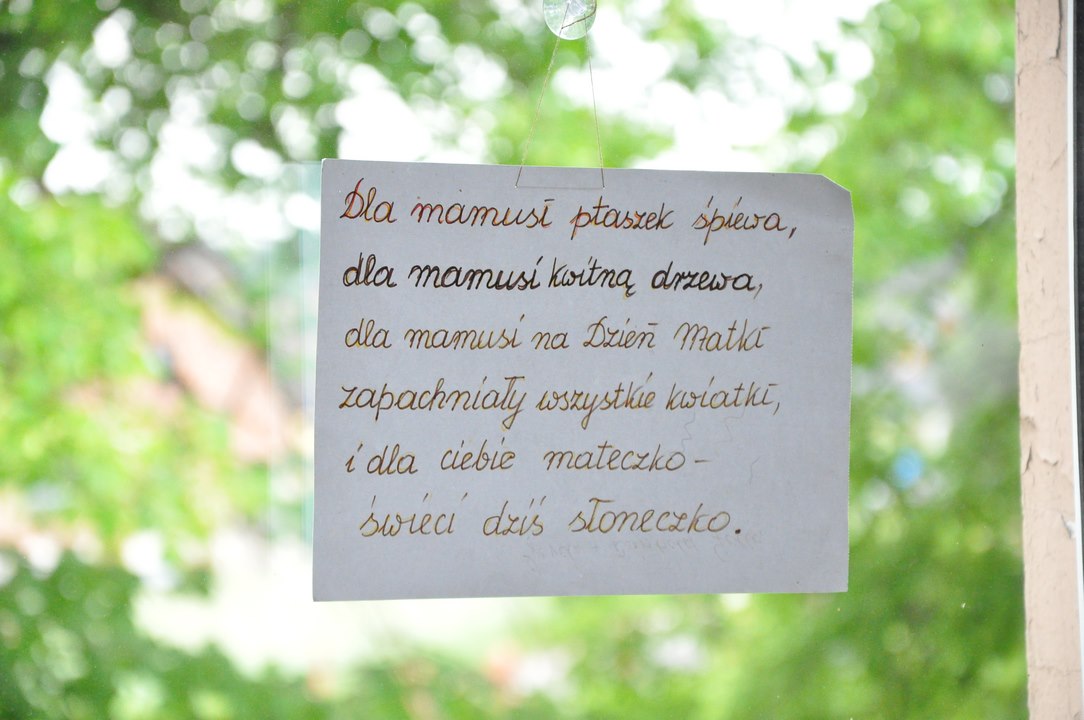 Dla mamusi ptaszek śpiewa,
dla mamusi kwitną drzewa,
dla mamusi na Dzień Matki
zapachniały wszystkie kwiatki,
i dla ciebie mateczko –
świeci dziś słoneczko.